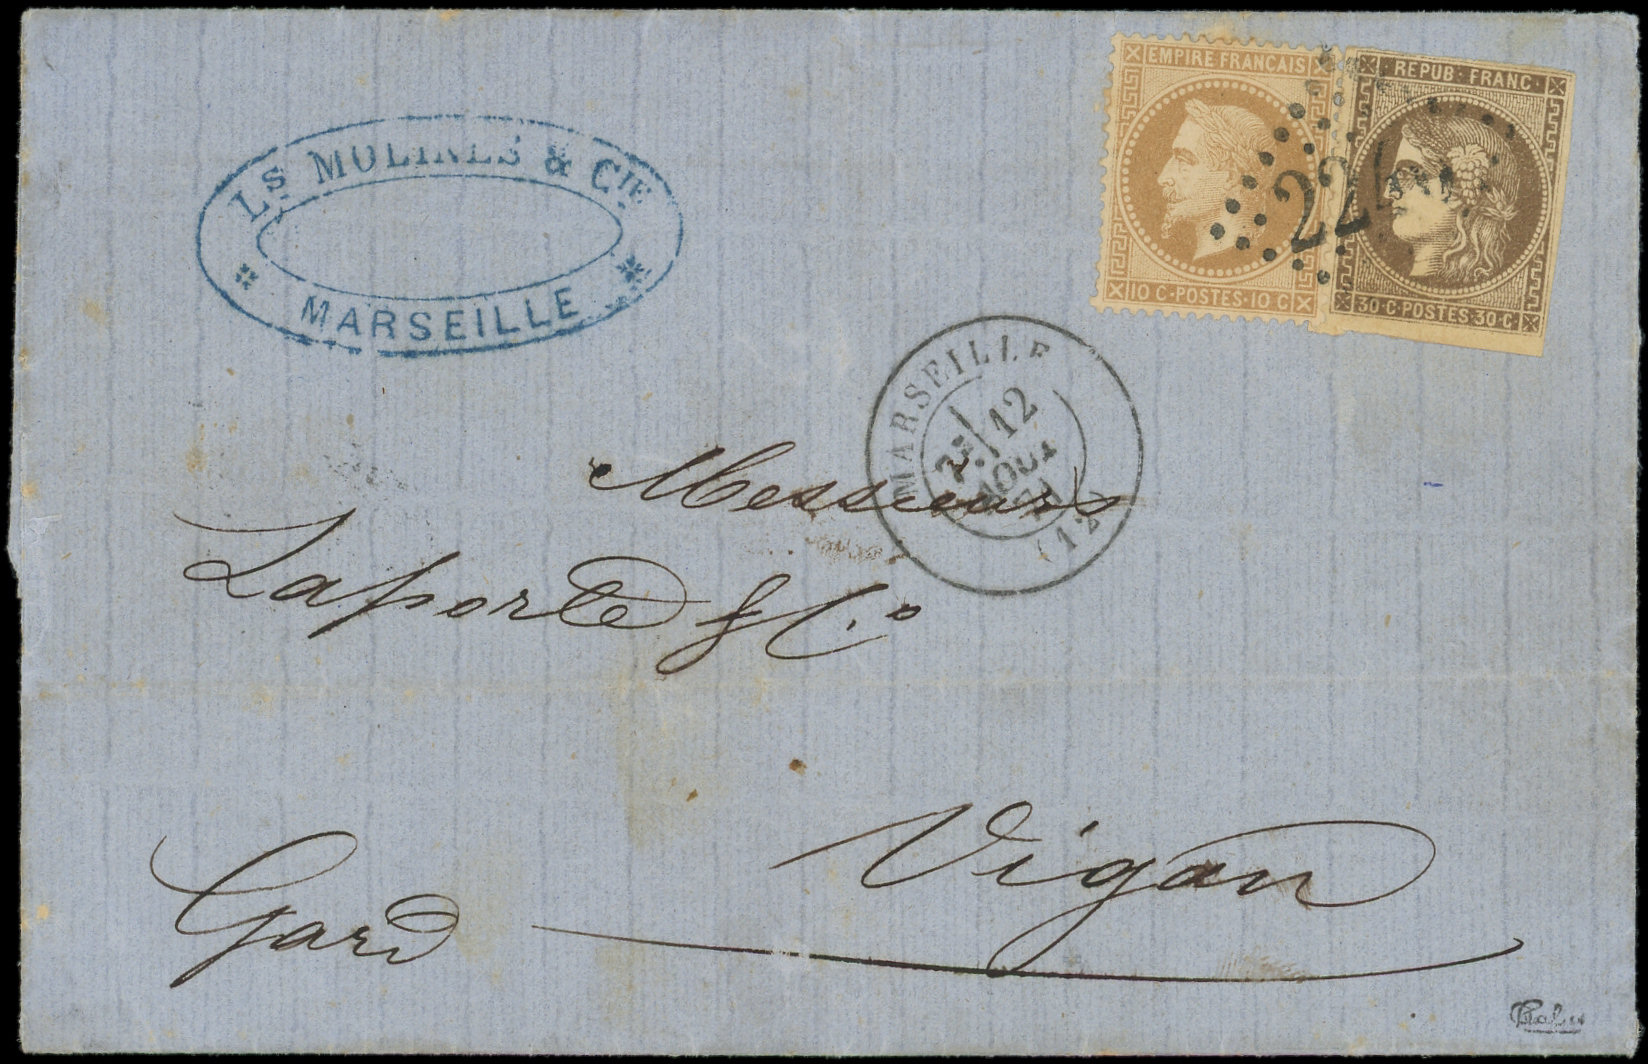 Ls MOLINES & CIE
MARSEILLE
EMPIRE FRANCAIS
10 C·POSTES·10 C
REPUB·FRANC·
30·C·POSTES·30·C
224
MARSEILLE
2E 12
AOUT
71
(12)
Messieurs
Laporte & Co
Vigan
Gard